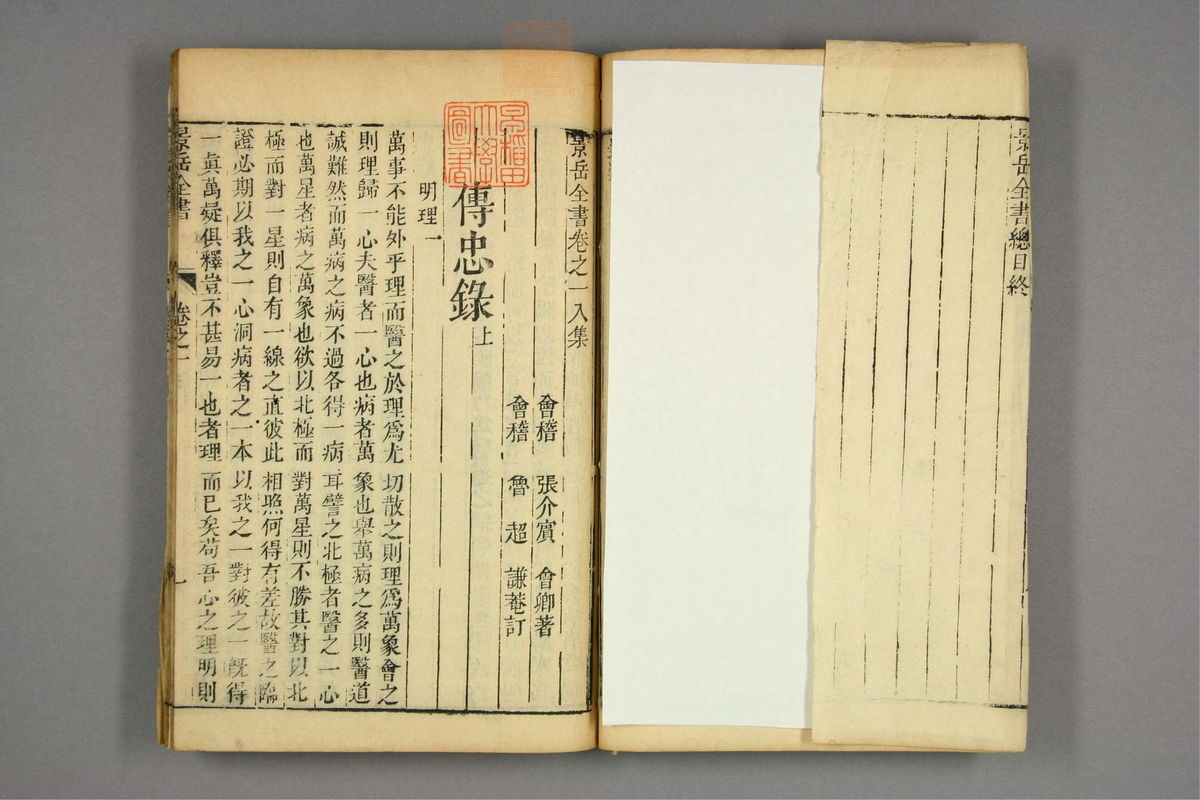 景岳全書總目終
景岳全書卷之一入集
會稽 張介賓 會卿著
會稽 魯超 謙菴訂
傳忠錄上
明理一
萬事不能外乎理而醫之於理爲尤切散之則理爲萬象會之
則理歸一心夫醫者一心也病者萬象也舉萬病之多則醫道
誠難然而萬病之病不過各得一病耳譬之北極者醫之一心
也萬星者病之萬象也欲以北極而對萬星則不勝其對以北
極而對一星則自有一線之直彼此相照何得有差故醫之臨
證必期以我之一心洞病者之一本以我之一對彼之一旣得
一眞萬疑俱釋豈不甚易一也者理而已矣苟吾心之理明則
景岳全書
卷之一
一
早稲田
大學
圖書